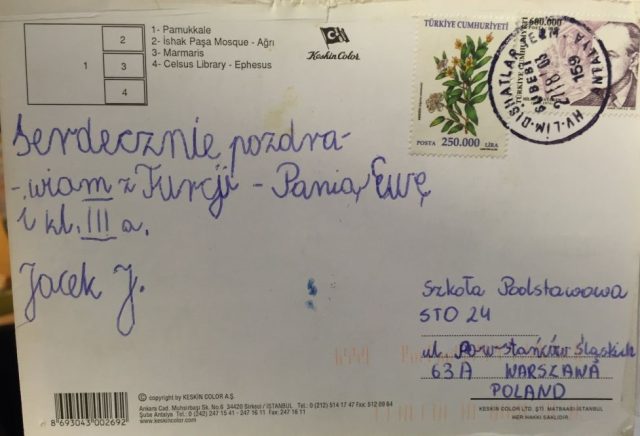 1- Pamukkale
2- İshak Paşa Mosque - Ağrı
3- Marmaris
4- Celsus Library - Ephesus
1
2
3
4
Keskin Color
TÜRKİYE CUMHURİYETİ
POSTA 250.000 LİRA
TÜRKİYE CUMHURİYETİ
ANTALYA
159
Serdecznie pozdra-
-wiam z Turcji - Panią Ewę
i kl. III a.
Jacek J.
Szkoła Podstawowa
STO 24
ul. Powstańców Śląskich
63A WARSZAWA
POLAND
© copyright by KESKIN COLOR A.Ş.
Ankara Cad. Muhsirbaşı Sk. No.6 34420 Sirkeci / ISTANBUL Tel.: 0 (212) 514 17 47 Fax. 512 09 64
Şube Antalya Tel.: 0 (242) 247 15 41 - 247 16 11 Fax. 247 16 11
www.keskincolor.com
8693043002692
KESKİN COLOR LTD. ŞTİ. MATBAASI-İSTANBUL
HER HAKKI SAKLIDIR.